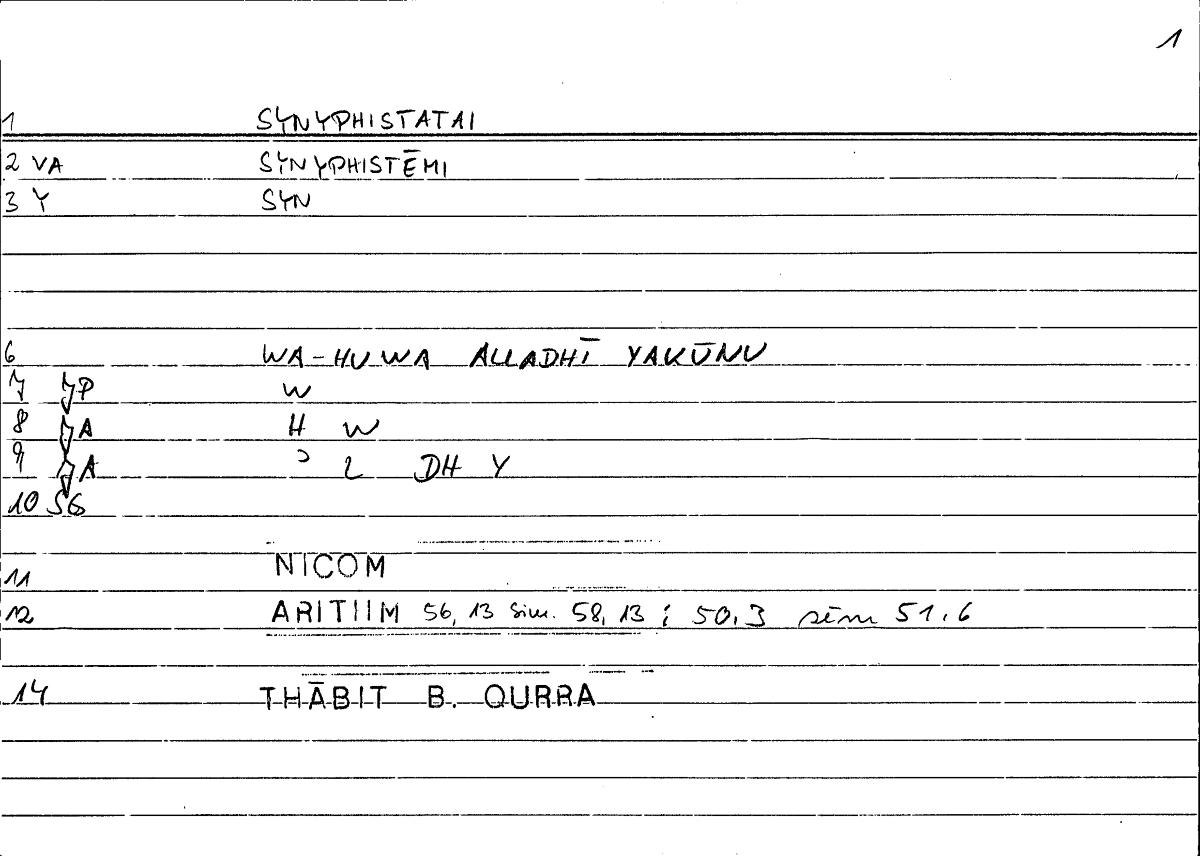 1
1 SYNYPHISTATAI
2 VA SYNYPHISTĒMI
3 Y SYN
6 WA-HUWA ALLADHĪ YAKŪNU
7 JP W
8 JA H W
9 JA Ɔ L DH Y
10 SG
11 NICOM
12 ARITIIM 56, 13 sim. 58, 13 ; 50.3 sēm 51.6
14 THĀBIT B. QURRA